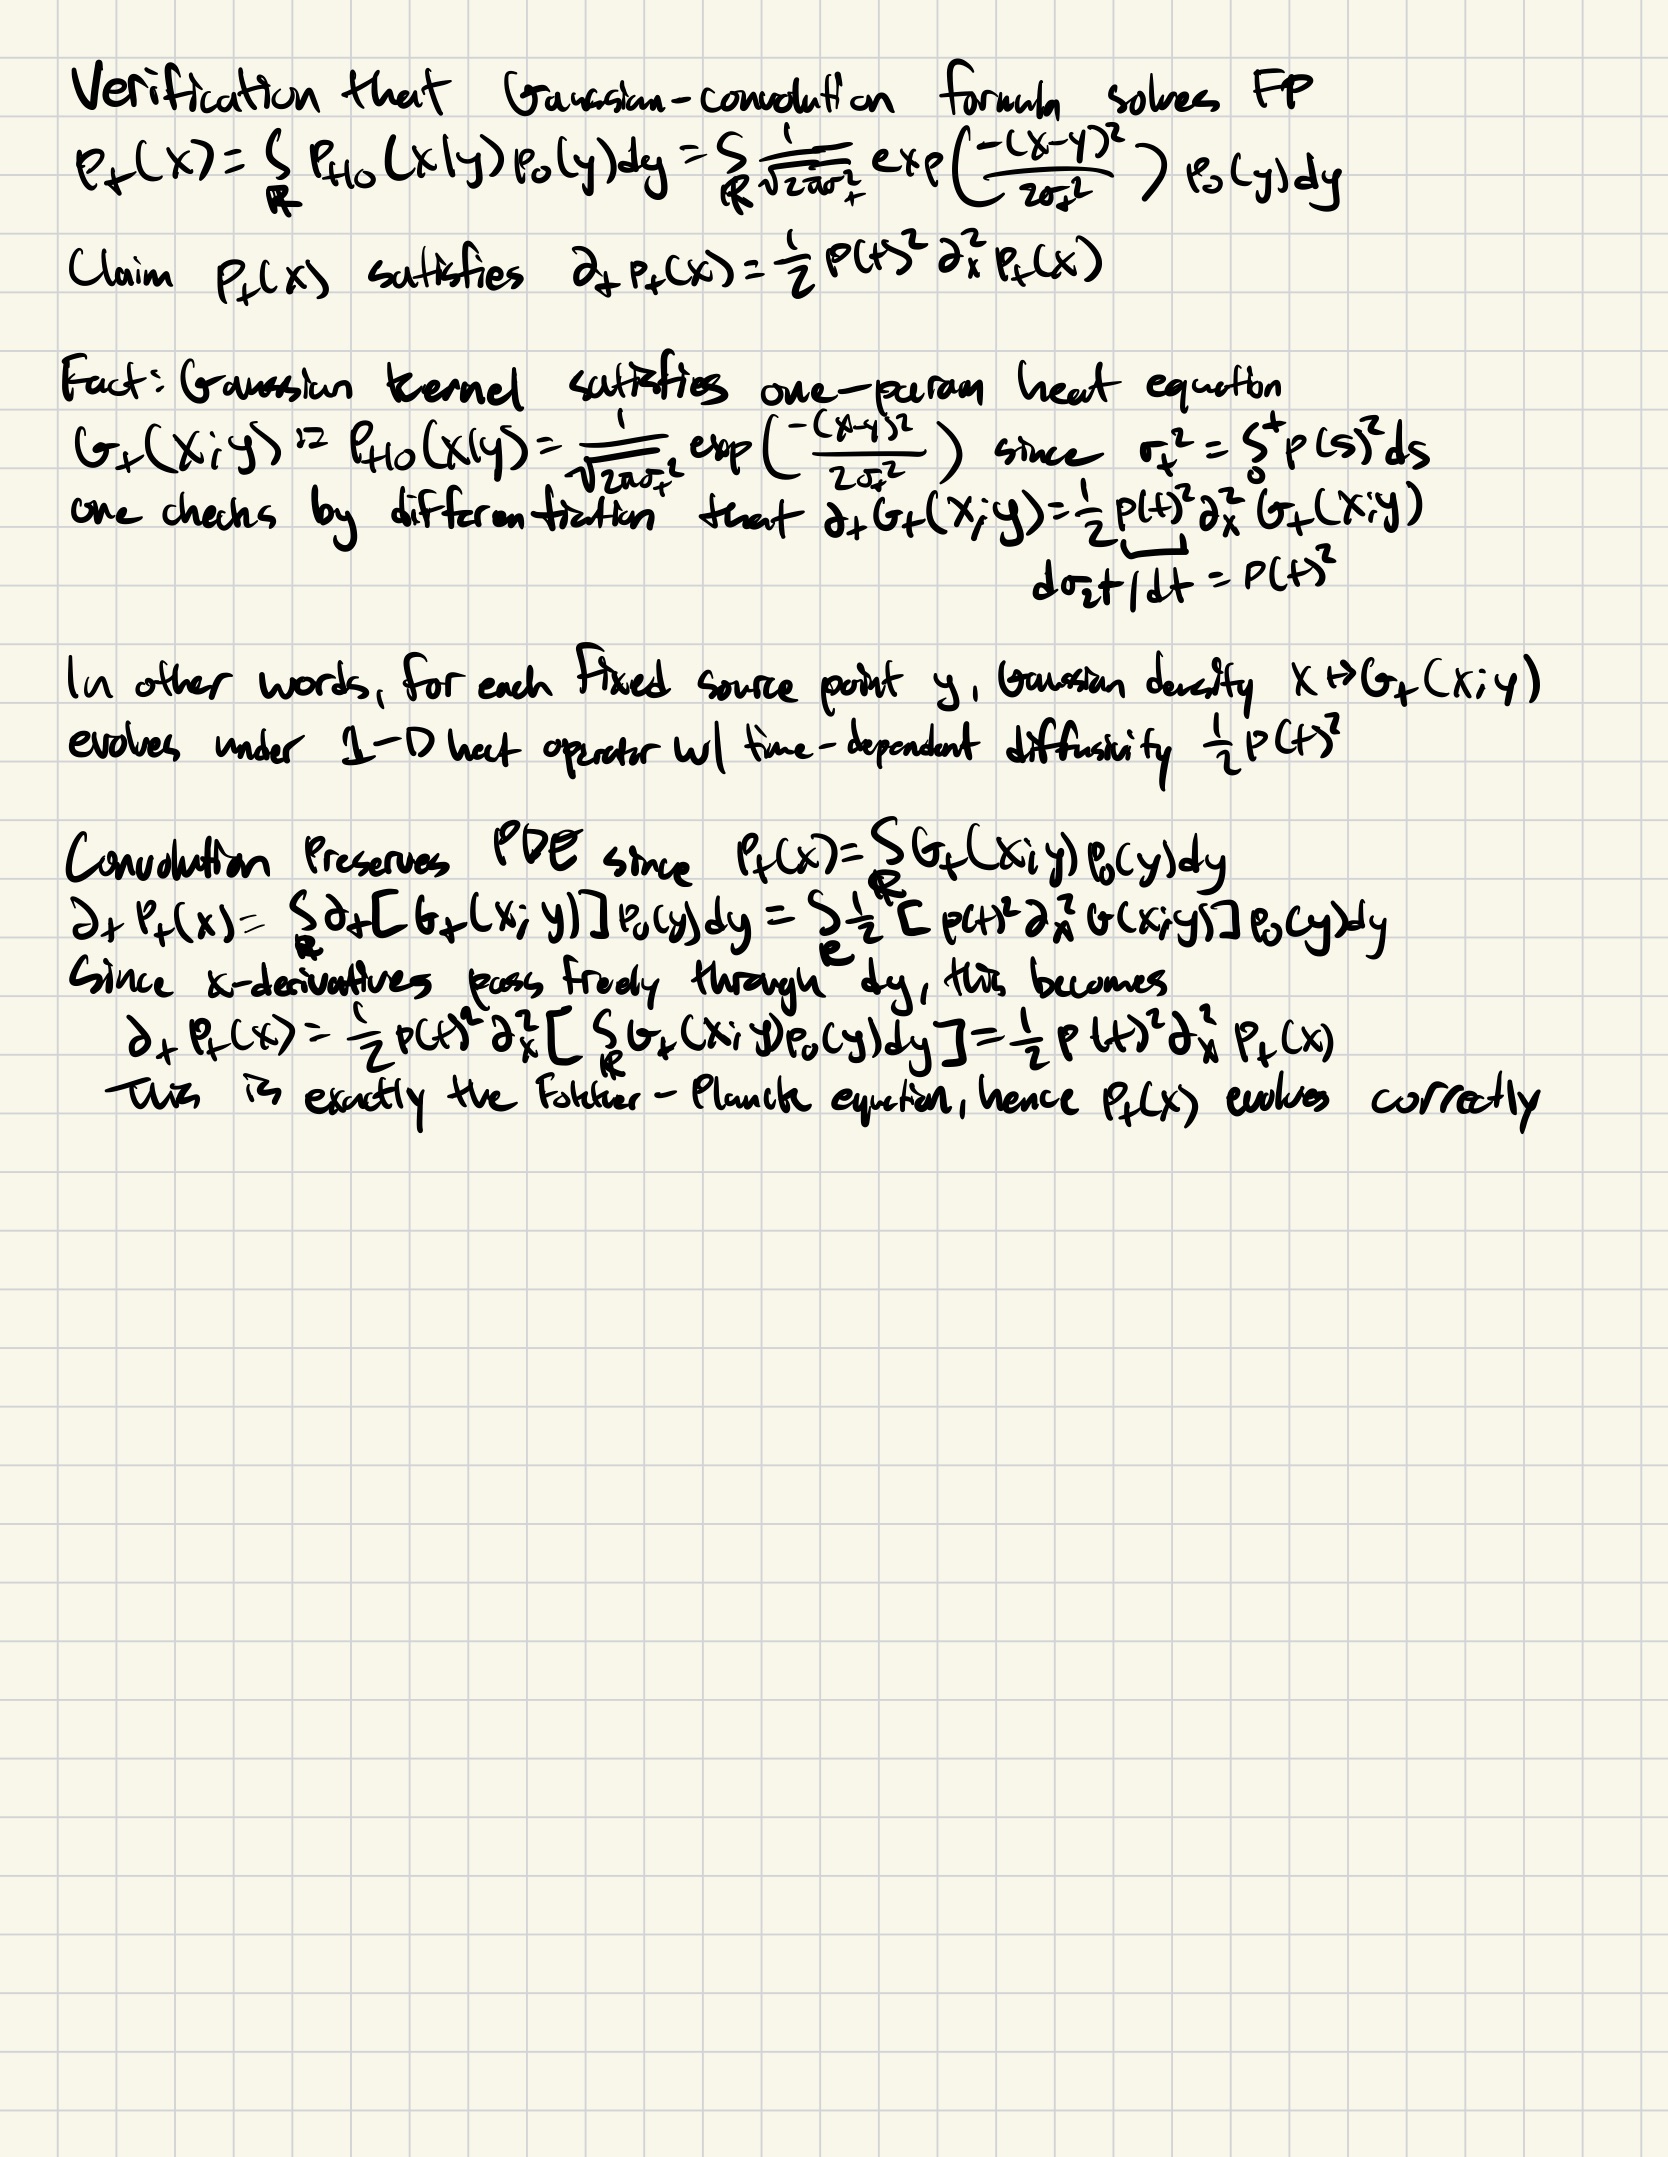 Verification that Gaussian-convolution formula solves FP
p_t(x) = ∫_ℝ P_{t|0}(x|y) p_0(y)dy = ∫_ℝ 1/√(2πσ_t^2) exp(-(x-y)^2/2σ_t^2) p_0(y)dy
Claim p_t(x) satisfies ∂_t p_t(x) = 1/2 p(t)^2 ∂_x^2 p_t(x)
Fact: Gaussian kernel satisfies one-param heat equation
G_t(x;y) := P_{t|0}(x|y) = 1/√(2πσ_t^2) exp(-(x-y)^2/2σ_t^2) since σ_t^2 = ∫_0^t p(s)^2 ds
one checks by differentiation that ∂_t G_t(x;y) = 1/2 p(t)^2 ∂_x^2 G_t(x;y)
dσ_2t/dt = p(t)^2
In other words, for each fixed source point y, Gaussian density x ↦ G_t(x;y)
evolves under 1-D heat operator w/ time-dependent diffusivity 1/2 p(t)^2
Convolution Preserves PDE since p_t(x) = ∫_ℝ G_t(x;y) p_0(y)dy
∂_t p_t(x) = ∫_ℝ ∂_t[G_t(x;y)] p_0(y)dy = ∫_ℝ 1/2 [p(t)^2 ∂_x^2 G(x;y)] p_0(y)dy
Since x-derivatives pass freely through dy, this becomes
∂_t p_t(x) = 1/2 p(t)^2 ∂_x^2 [∫_ℝ G_t(x;y) p_0(y)dy] = 1/2 p(t)^2 ∂_x^2 p_t(x)
This is exactly the Fokker-Planck equation, hence p_t(x) evolves correctly